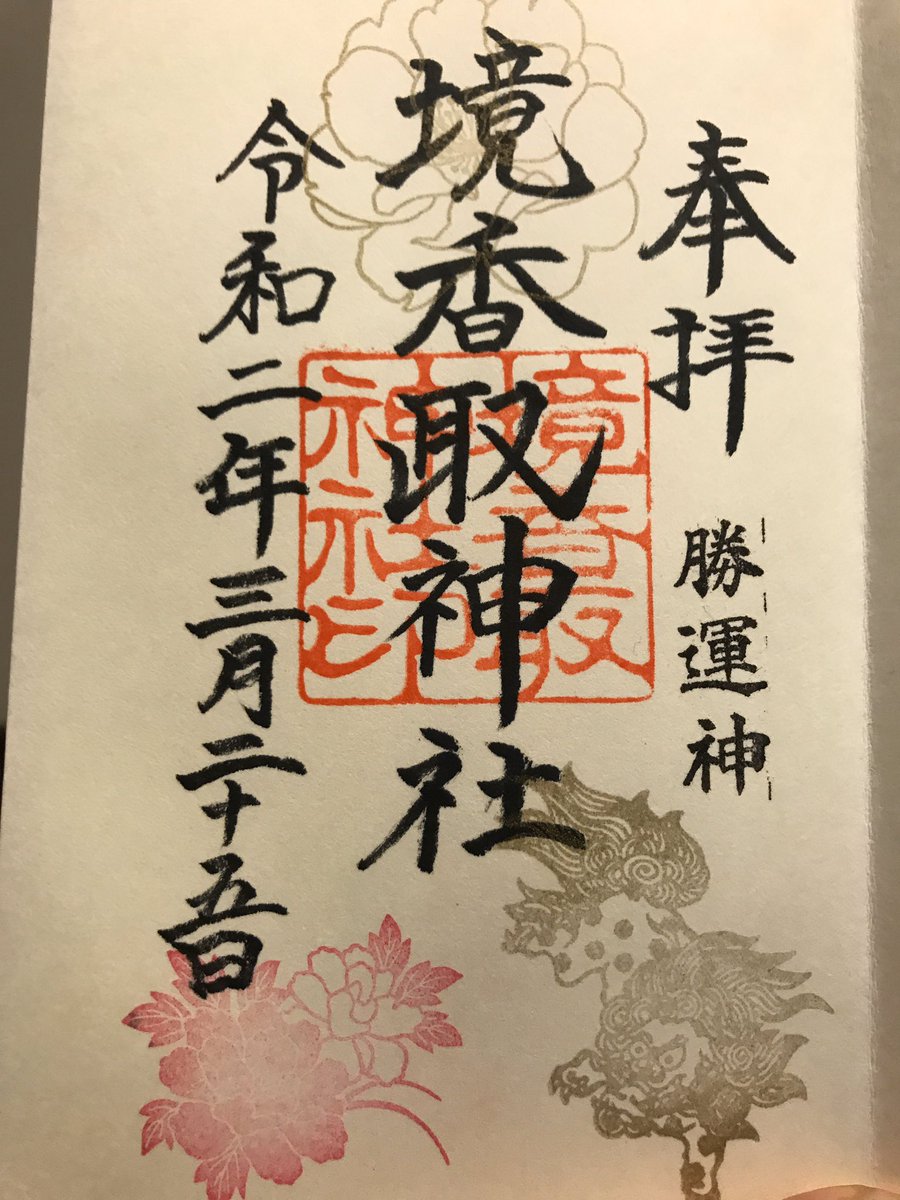 奉拝
勝運神
境香取神社
令和二年三月二十五日